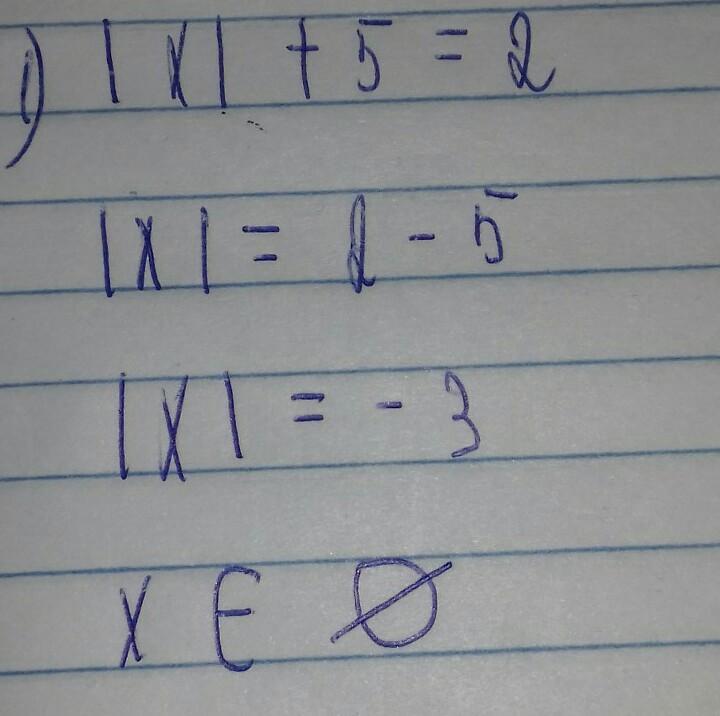 1) |x| + 5 = 2
|x| = 2 - 5
|x| = - 3
x ∈ ∅